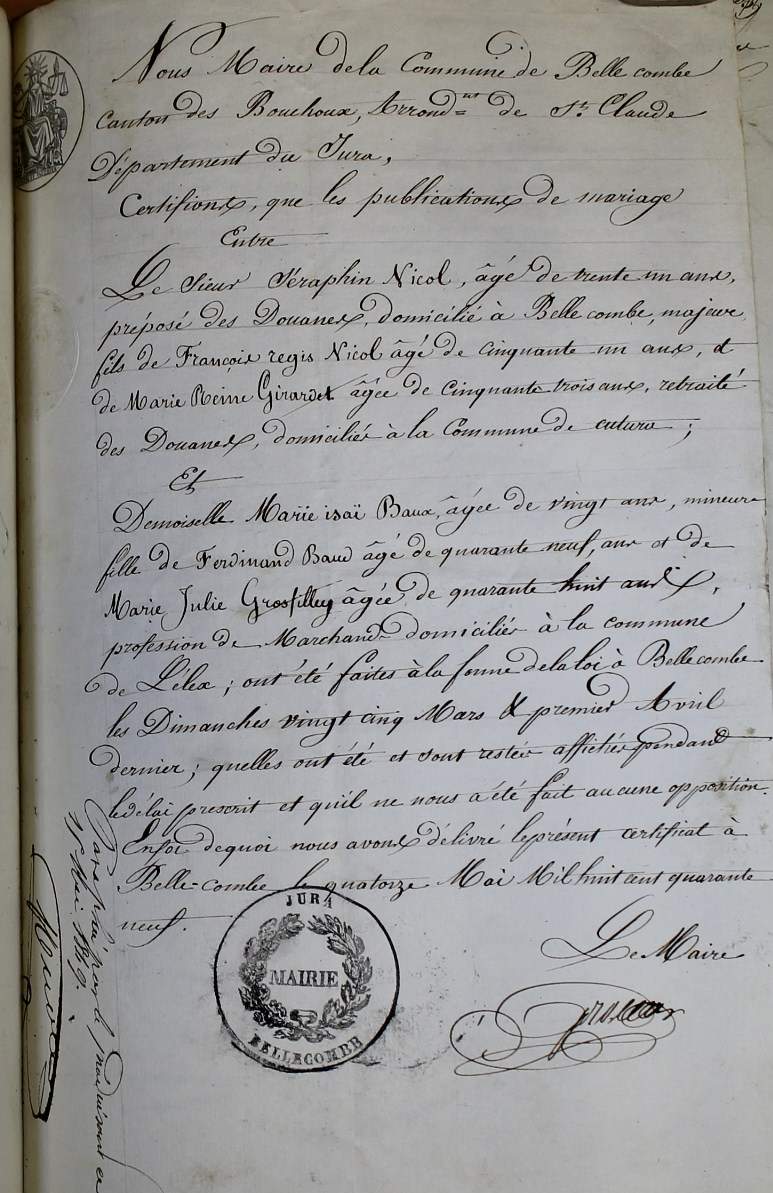 Nous Maire dela Commune de Belle combe
Canton des Bouchoux, Arrond.nt de St. Claude
Département du Jura,
Certifions, que les publications de mariage
Entre
Le Sieur Séraphin Nicol, âgé de trente un ans,
préposé des Douanes, domicilié à Belle combe, majeur
fils de François regis Nicol âgé de cinquante un ans, et
de Marie Reine Girardet âgée de cinquante trois ans, retraité
des Douanes, domiciliés à la Commune de cuture ;
Et
Demoiselle Marie isaï Baux, âgée de vingt ans, mineure
fille de Ferdinand Baud âgé de quarante neuf, ans et de
Marie Julie Grosfilley âgée de quarante huit ans,
profession de Marchand domiciliés à la commune
de Lélex ; ont été faites à la forme dela loi à Belle combe
les Dimanches vingt cinq Mars & premier Avril
dernier ; quelles ont été et sont restées affichées pendant
le délai prescrit et qu'il ne nous a été fait aucune opposition.
Enfoi dequoi nous avons délivré leprésent certificat à
Belle-combe le quatorze Mai Mil huit cent quarante
neuf.
Le Maire
JURA
MAIRIE
BELLECOMBE
Mai 1849.